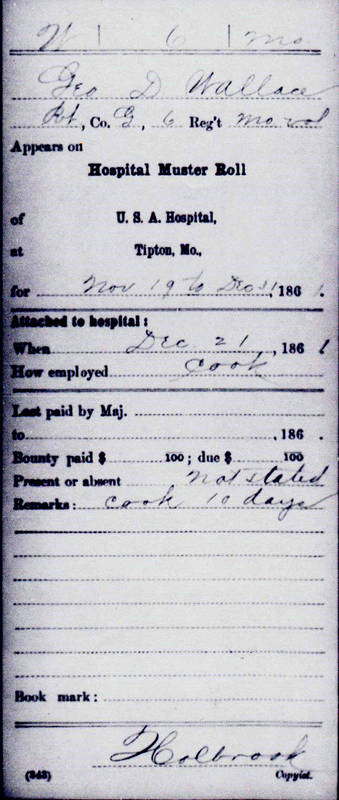 W | 6 | Mo.
Geo D Wallace
Pvt, Co. G, 6 Reg't Mo. Vol
Appears on
Hospital Muster Roll
of U. S. A. Hospital,
at Tipton, Mo.,
for Nov 19 to Dec 31, 1861.
Attached to hospital:
When Dec 21, 1861
How employed Cook
Last paid by Maj.
to , 186 .
Bounty paid $ 100; due $ 100
Present or absent Not stated
Remarks: Cook 10 days
Book mark:
Holbrook
(343) Copyist.